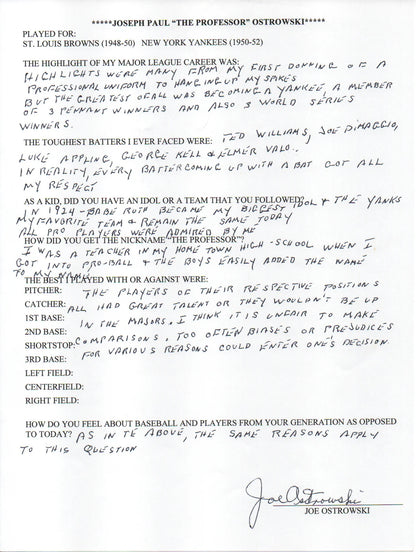 *****JOSEPH PAUL "THE PROFESSOR" OSTROWSKI*****
PLAYED FOR:
ST. LOUIS BROWNS (1948-50) NEW YORK YANKEES (1950-52)
THE HIGHLIGHT OF MY MAJOR LEAGUE CAREER WAS:
HIGHLIGHTS WERE MANY FROM MY FIRST DONNING OF A
PROFESSIONAL UNIFORM TO HANGING UP MY SPIKES
BUT THE GREATEST OF ALL WAS BECOMING A YANKEE, A MEMBER
OF 3 PENNANT WINNERS AND ALSO 3 WORLD SERIES
WINNERS.
THE TOUGHEST BATTERS I EVER FACED WERE: TED WILLIAMS, JOE DIMAGGIO,
LUKE APPLING, GEORGE KELL & ELMER VALO.
IN REALITY, EVERY BATTER COMING UP WITH A BAT GOT ALL
MY RESPECT
AS A KID, DID YOU HAVE AN IDOL OR A TEAM THAT YOU FOLLOWED?
IN 1924 - BABE RUTH BECAME MY BIGGEST IDOL & THE YANKS
MY FAVORITE TEAM & REMAIN THE SAME TODAY
ALL PRO PLAYERS WERE ADMIRED BY ME
HOW DID YOU GET THE NICKNAME "THE PROFESSOR"?
I WAS A TEACHER IN MY HOME TOWN HIGH-SCHOOL WHEN I
GOT INTO PRO-BALL & THE BOYS EASILY ADDED THE NAME
TO MY NAME
THE BEST I PLAYED WITH OR AGAINST WERE:
PITCHER: THE PLAYERS OF THEIR RESPECTIVE POSITIONS
CATCHER: ALL HAD GREAT TALENT OR THEY WOULDN'T BE UP
1ST BASE: IN THE MAJORS. I THINK IT IS UNFAIR TO MAKE
2ND BASE:
SHORTSTOP: COMPARISONS. TOO OFTEN BIASES OR PREJUDICES
3RD BASE: FOR VARIOUS REASONS COULD ENTER ONE'S DECISION
LEFT FIELD:
CENTERFIELD:
RIGHT FIELD:
HOW DO YOU FEEL ABOUT BASEBALL AND PLAYERS FROM YOUR GENERATION AS OPPOSED
TO TODAY? AS IN TE ABOVE, THE SAME REASONS APPLY
TO THIS QUESTION
Joe Ostrowski
JOE OSTROWSKI